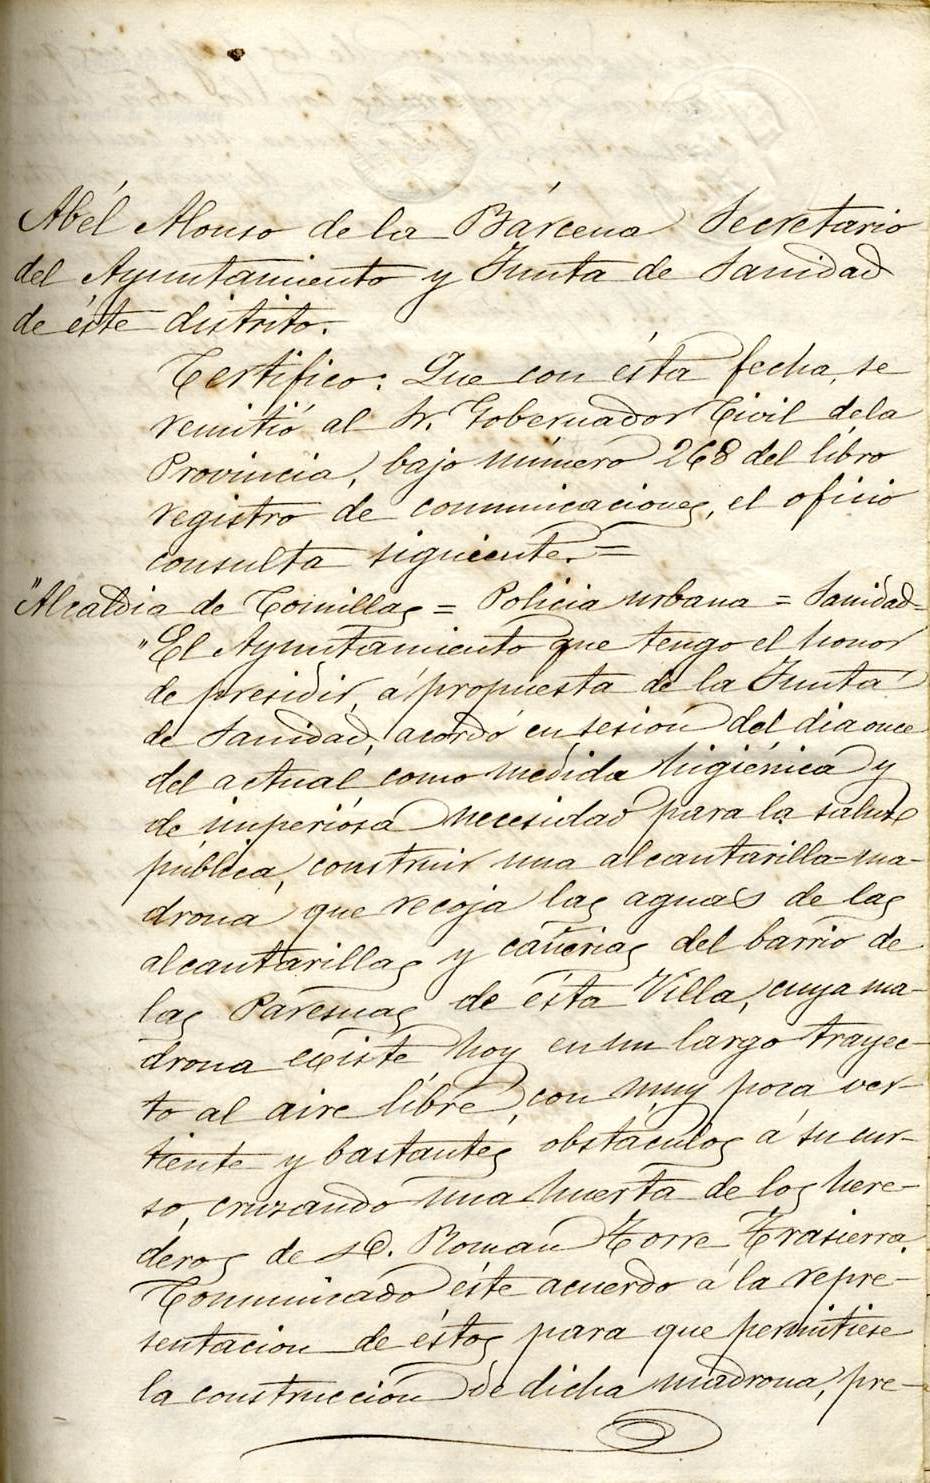 Abél Alonso de la Bárcena Secretario
del Ayuntamiento y Junta de Sanidad
de éste distrito.
Certifico: Que con ésta fecha, se
remitió al Sr. Gobernador Civil dela
Provincia, bajo número 268 del libro
registro de comunicaciones, el oficio
consulta siguiente. =
"Alcaldia de Comillas = Policia urbana = Sanidad =
"El Ayuntamiento que tengo el honor
de presidir, á propuesta de la Junta
de Sanidad, acordó en sesion del dia once
del actual como medida higiénica y
de imperiósa necesidad para la salud
pública, construir una alcantarilla-ma-
drona que recoja las aguas de las
alcantarillas y cañerias del barrio de
las Paresmas de ésta Villa, cuya ma-
drona existe hoy en un largo trayec-
to al aire libre, con muy poca ver-
tiente y bastantes obstáculos á su cur-
so, cruzando una huerta de los here-
deros de D. Roman Torre Trasierra.
Comunicado éste acuerdo á la repre-
sentacion de éstos para que permitiese
la construccion de dicha madrona, pre-